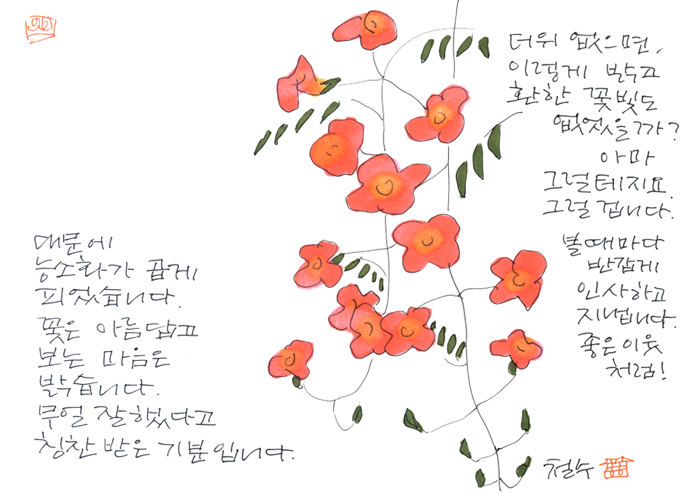 대문에
능소화가 곱게
피었습니다.
꽃은 아름답고
보는 마음은
밝습니다.
무얼 잘했다고
칭찬 받은 기분입니다.
더위 없으면,
이렇게 밝고
환한 꽃빛도
없었을까?
아마
그럴테지요.
그럴 겁니다.
볼때마다
반갑게
인사하고
지냅니다.
좋은 이웃
처럼!
철수